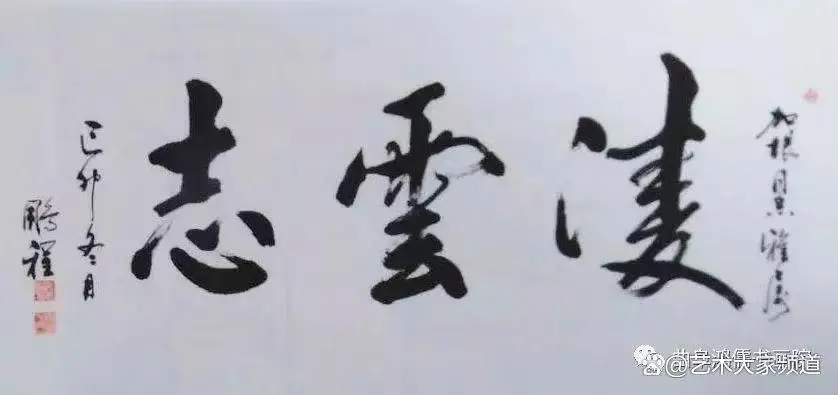 根 雅
凌雲志
己卯冬月
鵬程
@艺术大家频道